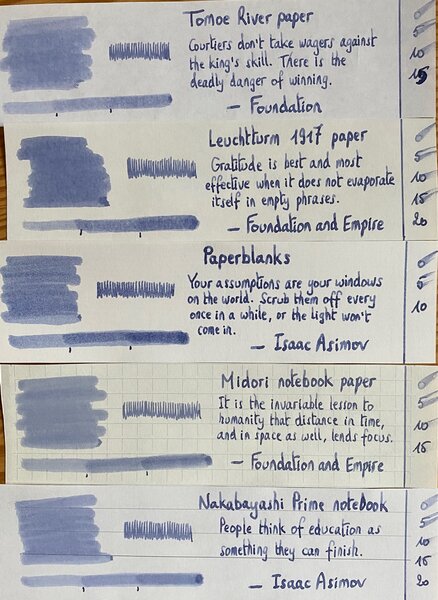 Tomoe River paper
Courtiers don't take wagers against
the king's skill. There is the
deadly danger of winning.
— Foundation
5
10
15
Leuchtturm 1917 paper
Gratitude is best and most
effective when it does not evaporate
itself in empty phrases.
— Foundation and Empire
5
10
15
20
Paperblanks
Your assumptions are your windows
on the world. Scrub them off every
once in a while, or the light won't
come in.
— Isaac Asimov
5
10
Midori notebook paper
It is the invariable lesson to
humanity that distance in time,
and in space as well, lends focus.
— Foundation and Empire
5
10
15
Nakabayashi Prime notebook
People think of education as
something they can finish.
— Isaac Asimov
5
10
15
20